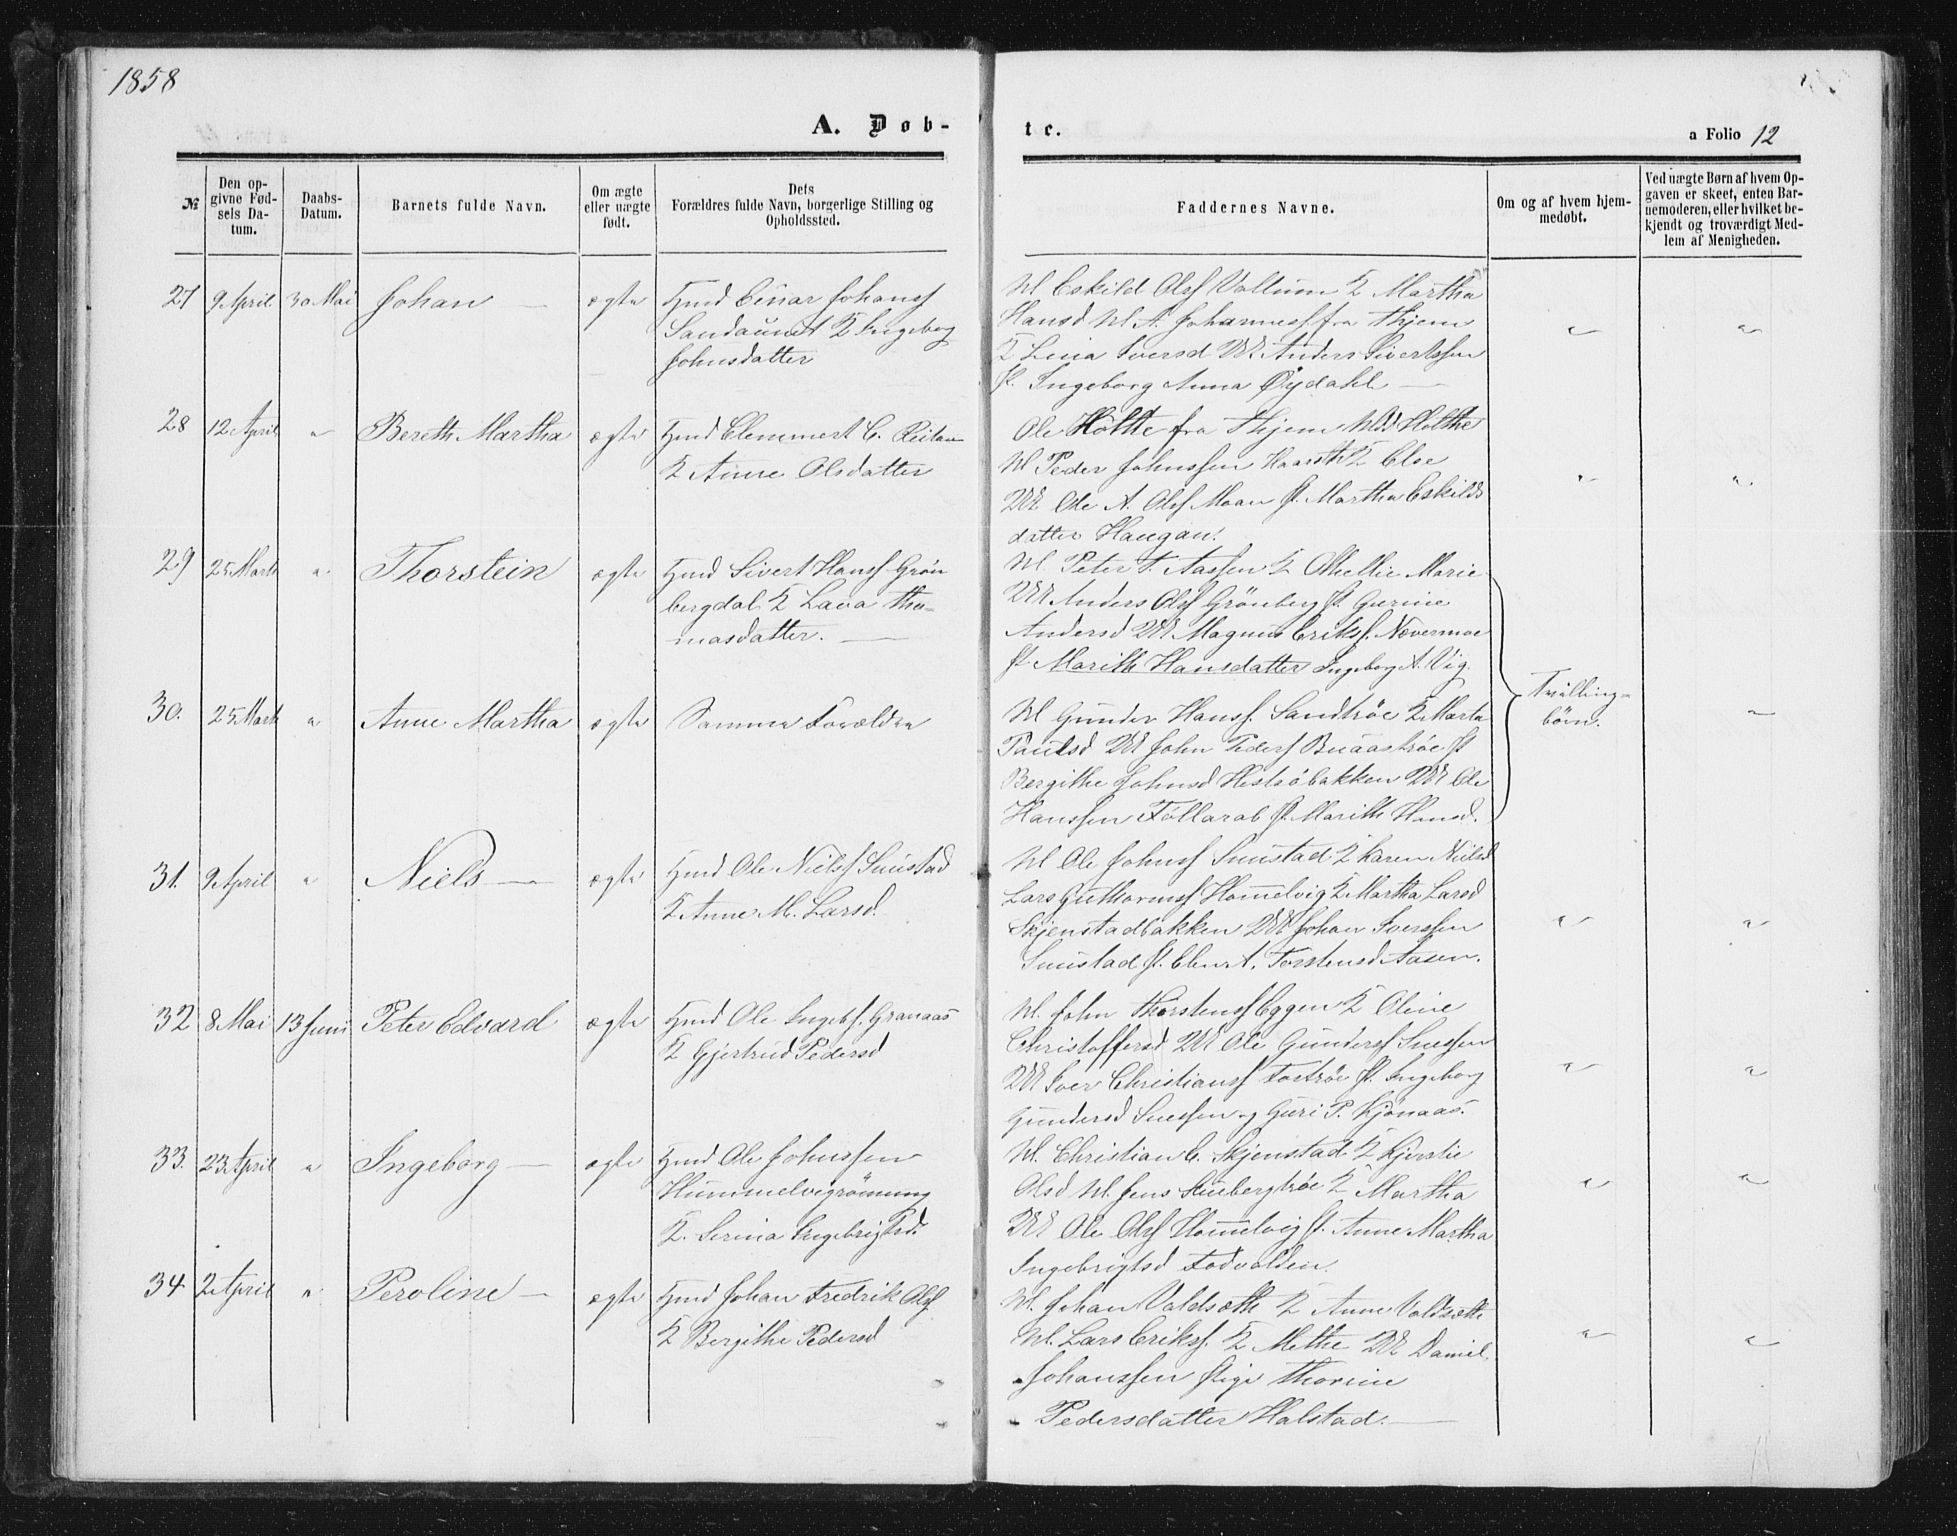 1858
A. Døb-
te.
a Folio 12
№
Den op-
givne Fød-
sels Da-
tum.
Daabs-
Datum.
Barnets fulde Navn.
Om ægte
eller uægte
født.
Dets
Forældres fulde Navn, borgerlige Stilling og
Opholdssted.
Faddernes Navne.
Om og af hvem hjem-
medøbt.
Ved uægte Børn af hvem Op-
gaven er skeet, enten Bar-
nemoderen, eller hvilket be-
kjendt og troværdigt Med-
lem af Menigheden.
27 9 April 30 Mai Johan — ægte Hmd Einar Johans
Sandaunet K Ingeborg
Johnsdatter
M Eskild Ols Vollum K Martha
Hansd M A. Johannes fra Thjem
K Lina Iversd UK Anders Sivertssen
P. Ingeborg Anna Öydahl —
28 12 April " Bereth Martha ægte Hmd Clemmert C. Reitan
K Anne Olsdatter
Ole Holthe fra Thjem Holthe
M Peder Johnssen Haarsth K Else
UK Ole A. Ols Moan P. Martha Eskilds
datter Haugan.
29 25 Marts " Thorstein ægte Hmd Sivert Hans Grön
bergdal K Lava Tho-
masdatter. —
M Peter T. Aassen K Marie
UK Anders Ols Grönberg P. Gurine
Andersd UK Magnus Eriks. Nævermoe
P Marith Hansdatter Ingeborg A. Vig.
30. 25 Marts " Anne Martha ægte Samme Forældre
M Gunder Hans. Sandtröe K Marta
Paulsd UK John Peders Buaaströe P
Bergithe Johnsd Hesträbakken UK Ole
Hanssen Föllarab P. Marith Hansd.
Tvilling-
börn.
"
31. 9 April " Niels — ægte Hmd Ole Niels Smistad
K Anne M. Larsd.
M Ole Johns Smistad K Karen Nielsd
Lars Guthorms Homelvig K Martha Larsd
Skjenstadbakken UK Johan Iverssen
Smistad P. Elen A. Torstensd Aasen.
32 8 Mai 13 Juni Peter Edvard ægte Hmd Ole Ingebs. Granaas
K Gjertrud Pedersd
M. John Thorstens Eggen K Oline
Christoffersd UK Ole Gunders Suessen
UK Iver Christians Fortröe P. Ingeborg
Gundersd Suessen og Guri P. Kjönaas.
33. 23 April " Ingeborg — ægte Hmd Ole Johnssen
Hummelvigrönning
K. Serina Ingebrigtsd.
M. Christian C. Skjenstad K Kjerstie
Olsd M. Jens Stubergtröe K Martha
UK Ole Ols Homelvig P. Anne Martha
Ingebrigtsd Fodvolden.
34 2 April " Peroline — ægte Hmd Johan Fredrik Ols.
K Bergithe Pedersd
M. Johan Valdsæth K Anne Valdsæth
M. Lars Eriks. K Methe UK Daniel
Johanssen Pige Thorine
Pedersdatter Halstad. —